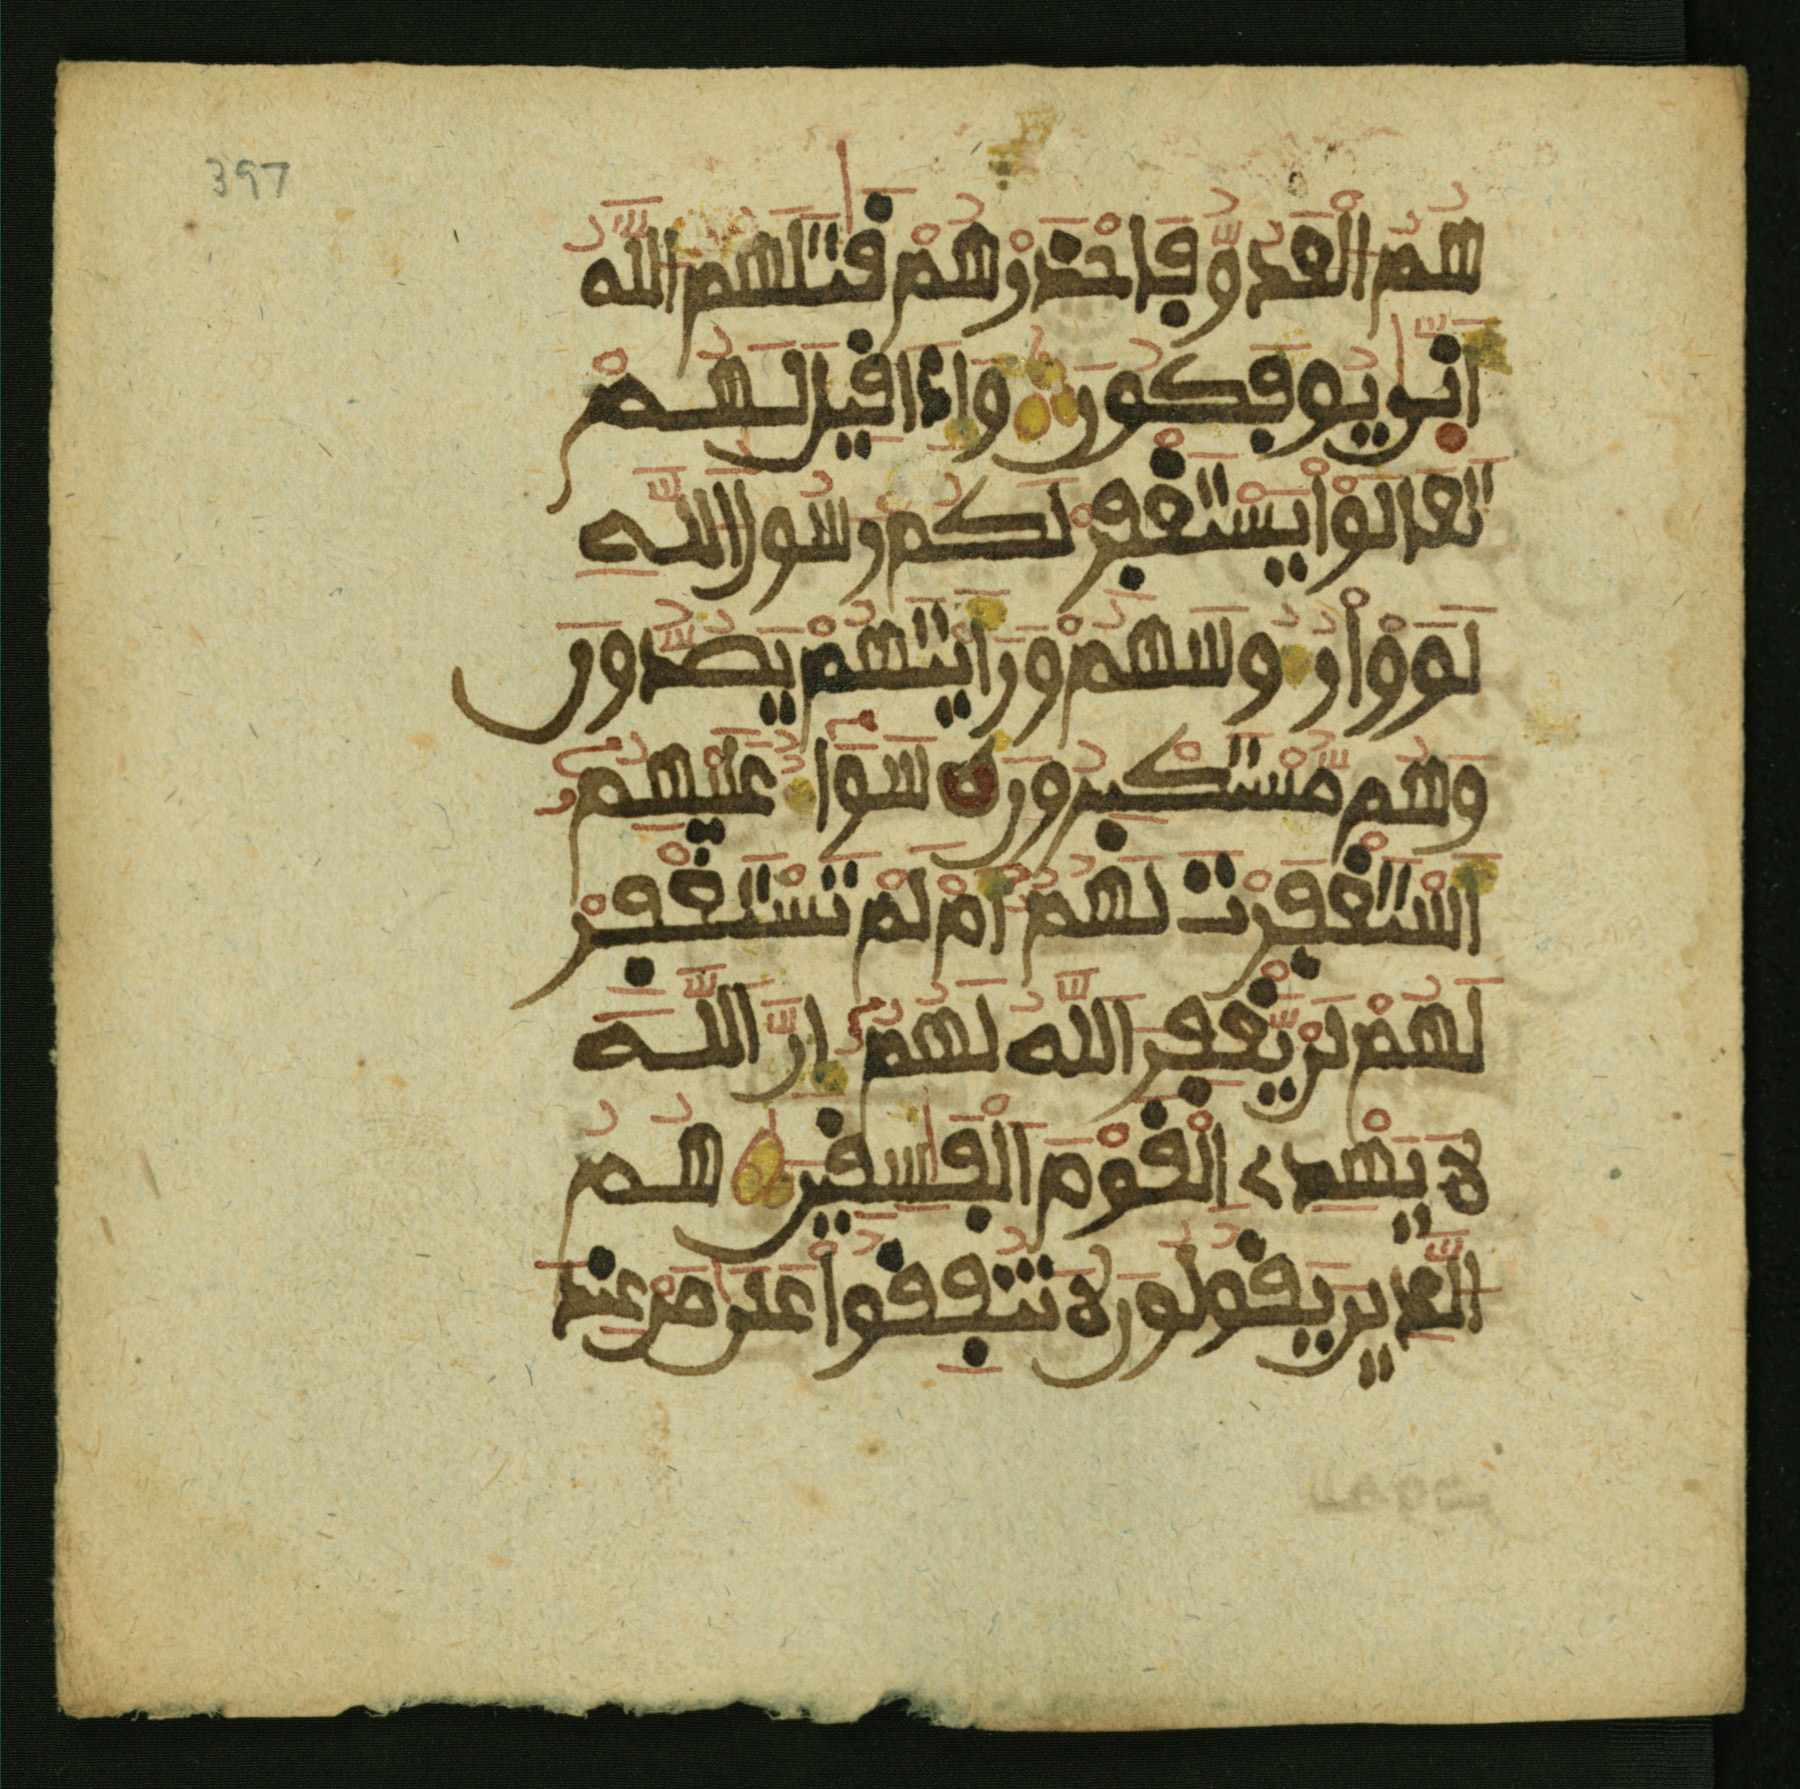 397
هُمُ الْعَدُوُّ فَاحْذَرْهُمْ قَتَلَهُمُ اللَّهُ
أَنّى يُوفَكُونَ وَإِذَا قِيلَ لَهُمْ
تَعَالَوْا يَسْتَغْفِرْ لَكُمْ رَسُولُ اللَّهِ
لَوَوْا رُءُوسَهُمْ وَرَأَيْتَهُمْ يَصُدُّونَ
وَهُم مُّسْتَكْبِرُونَ سَوَاءٌ عَلَيْهِمُ
أَسْتَغْفَرْتَ لَهُمُ أَمْ لَمْ تَسْتَغْفِرْ
لَهُمْ لَنْ يَّغْفِرَ اللَّهُ لَهُمُ إِنَّ اللَّهَ
لَا يَهْدِي الْقَوْمَ الْفَسِقِينَ هُمُ
الَّذِينَ يَقُولُونَ لَا تُنفِقُوا عَلَى مَنْ عِندَ